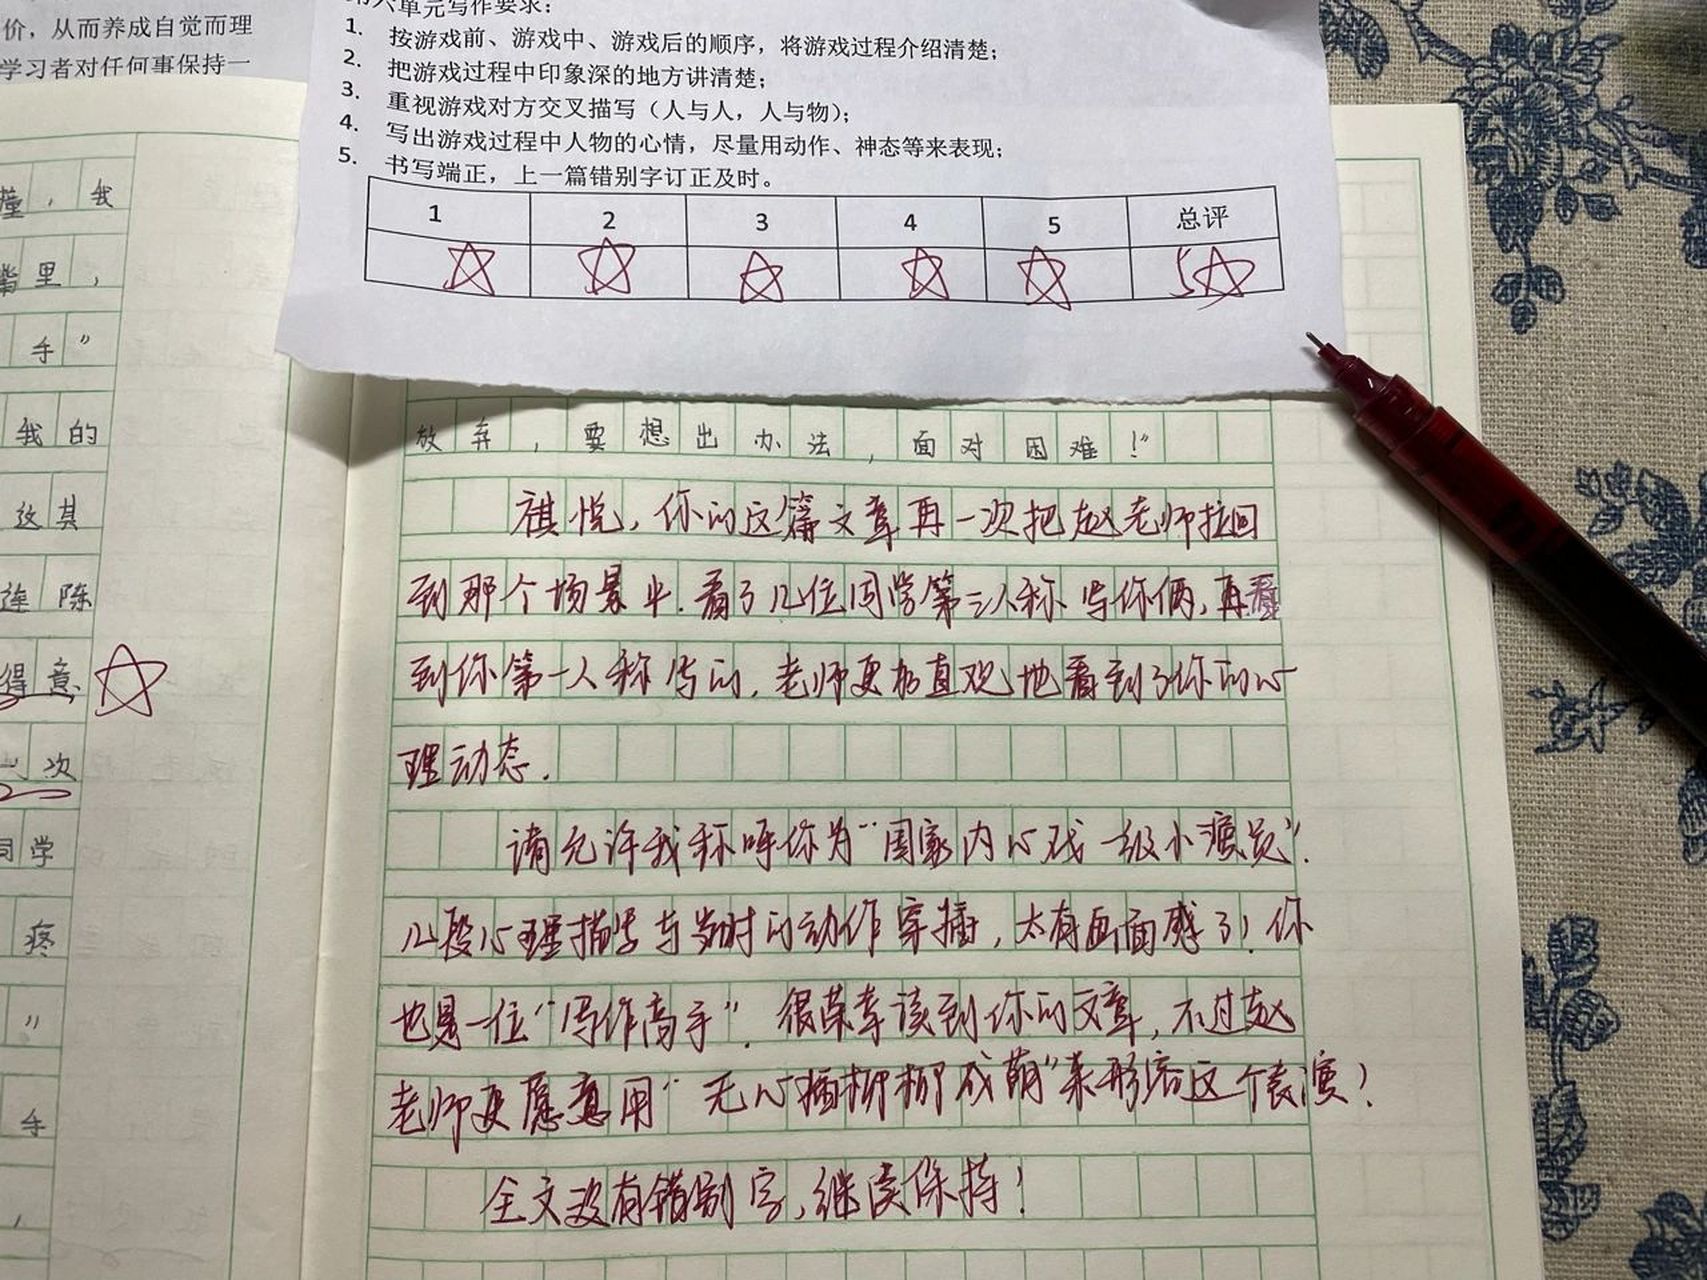 价，从而养成自觉而理
学习者对任何事保持一
六单元写作要求：
1. 按游戏前、游戏中、游戏后的顺序，将游戏过程介绍清楚；
2. 把游戏过程中印象深的地方讲清楚；
3. 重视游戏对方交叉描写（人与人，人与物）；
4. 写出游戏过程中人物的心情，尽量用动作、神态等来表现；
5. 书写端正，上一篇错别字订正及时。
1 2 3 4 5 总评
5☆
撞，我
嘴里，
手”
我的
这其
连陈
得意
次
同学
疼
”
手
，
放弃，要想出办法，面对困难！”
祺悦，你的这篇文章再一次把赵老师拉回
到那个场景中.看了几位同学第三人称写你俩,再看
到你第一人称写的,老师更加直观地看到了你的心
理动态.
请允许我称呼你为“国家内心戏一级小演员”.
几段心理描写与当时的动作穿插,太有画面感了!你
也是一位“写作高手”.很荣幸读到你的文章,不过赵
老师更愿意用“无心插柳柳成荫”来形容这个表演!
全文没有错别字,继续保持!